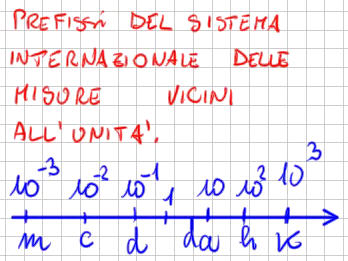 PREFISSI DEL SISTEMA
INTERNAZIONALE DELLE
MISURE VICINI
ALL'UNITA'.
10⁻³ 10⁻² 10⁻¹ 1 10 10² 10³
m c d da h k